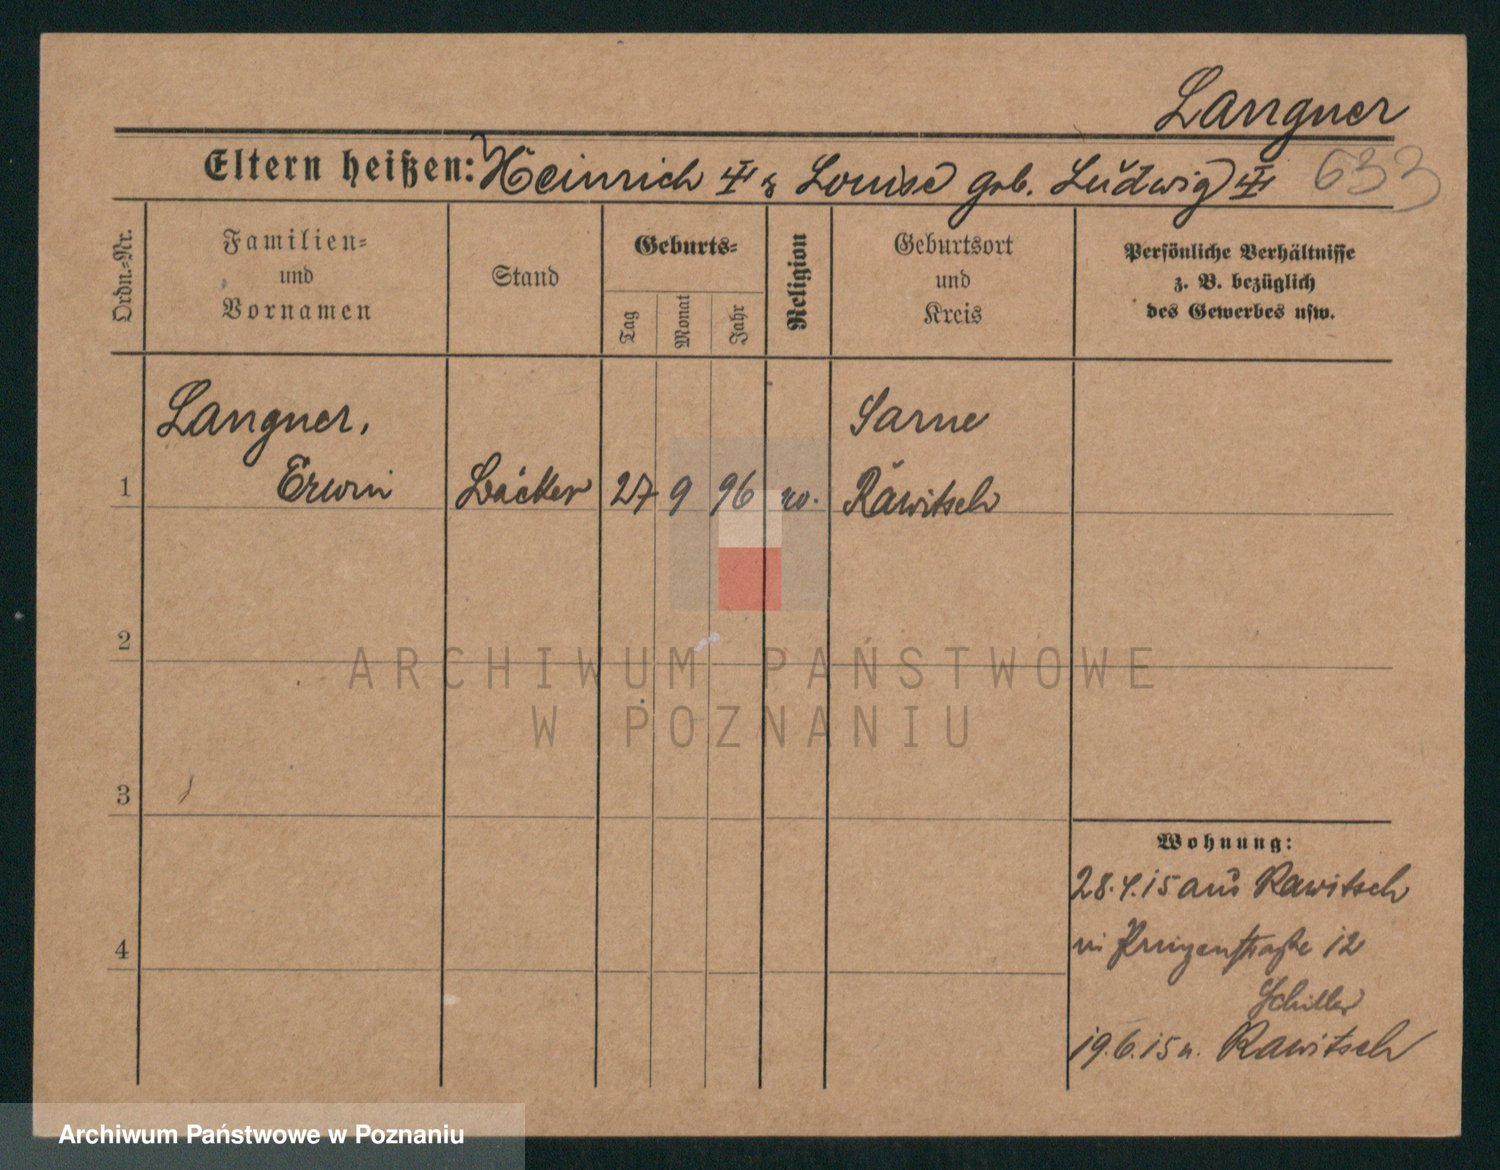 Langner
Eltern heißen: Heinrich & Louise geb. Ludwig 633
Ordn.-Nr.
Familien-
und
Vornamen
Stand
Geburts-
Tag
Monat
Jahr
Religion
Geburtsort
und
Kreis
Persönliche Verhältnisse
z. B. bezüglich
des Gewerbes usw.
Langner, Sarne
1 Erwin Bäcker 27 9 96 Rawitsch
2
ARCHIWUM PAŃSTWOWE
W POZNANIU
3
Wohnung:
28.4.15 aus Rawitsch
4
12
Schiller
19.6.15 n. Rawitsch
Archiwum Państwowe w Poznaniu